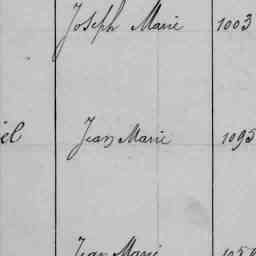 Joseph Marie 1003
el Jean Marie 1095
Jean Marie